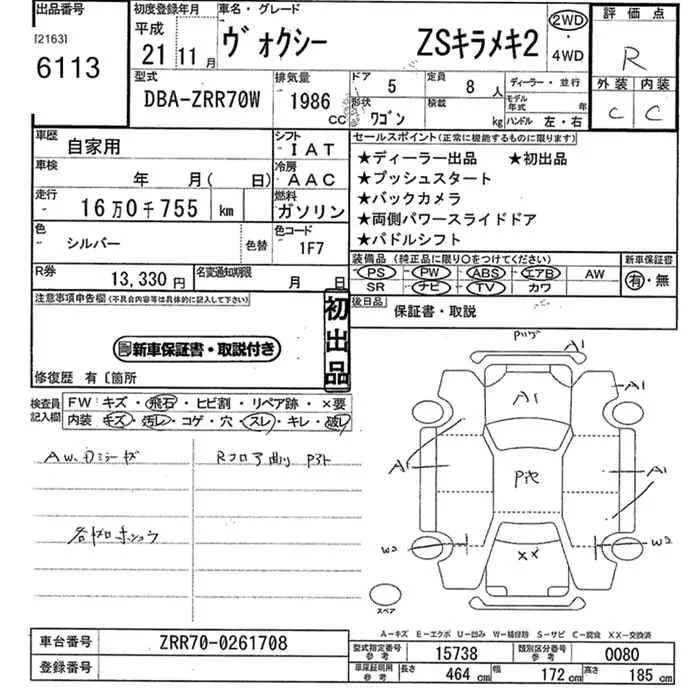 出品番号 初度登録年月 車名・グレード 評価点
[2163] 平成 2WD
6113 21 11月 ヴォクシー ZSキラメキ2 ・ R
4WD
型式 排気量 ドア 5 定員 8人 ディーラー・並行 外装 内装
DBA-ZRR70W 1986cc 形状 ワゴン 積載 kg モデル年式 年 C C
ハンドル 左・右
車歴 自家用 シフト IAT セールスポイント(正常に機能するものに限ります)
車検 年 月( 日) 冷房 AAC ★ディーラー出品 ★初出品
★プッシュスタート
走行 16万0千755 km 燃料 ガソリン ★バックカメラ
★両側パワースライドドア
色 シルバー 色替 色コード 1F7 ★パドルシフト
装備品(純正品に限り〇をつけてください) 新車保証書
R券 13,330円 名変通知期限 月 日 PS PW ABS エアB AW 有・無
SR ナビ TV カワ
注意事項申告欄(不具合内容等は具体的に記入して下さい) 初出品 後日品 保証書・取説
新車保証書・取説付き
修復歴 有〔箇所
検査員記入欄 FW:キズ・飛石・ヒビ割・リペア跡・×要
内装 キズ・汚レ・コゲ・穴・スレ・キレ・破レ
A1
A1 A1
A1 A1
W2 XX W2
スペア
A-キズ E-エクボ U-凹み W-補修跡 S-サビ C-腐食 XX-交換済
車台番号 ZRR70-0261708 型式指定番号 参考 15738 類別区分番号 参考 0080
登録番号 車庫証明用 参考 長さ 464cm 幅 172cm 高さ 185cm